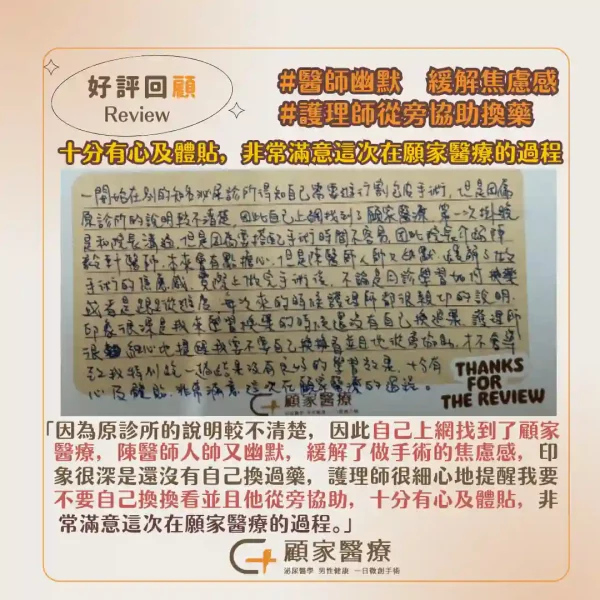 好評回顧
Review
#醫師幽默 緩解焦慮感
#護理師從旁協助換藥
十分有心及體貼，非常滿意這次在顧家醫療的過程
一開始在別的知名泌尿診所得知自己需要進行割包皮手術，但是因為
原診所的說明較不清楚，因此自己上網找到了顧家醫療，第一次掛號
是和院長溝通，但是因為需搭配手術時間不容易，因此院長介紹陳
醫師，本來會有點擔心，但是陳醫師人帥又幽默，緩解了做
手術的焦慮感，實際上做完手術後，不論是回診學習如何換藥
或者是追蹤進度，每次來的時候護理師都很親切的說明，
印象很深是我來學習換藥的時候還沒有自己換過藥，護理師
很細心地提醒我要不要自己換換看並且他從旁協助，才不會導
致我特別跑一趟結果沒有良好的學習效果，十分有
心及體貼，非常滿意這次在顧家醫療的過程。
顧家醫療
THANKS
FOR
THE REVIEW
「因為原診所的說明較不清楚，因此自己上網找到了顧家
醫療，陳醫師人帥又幽默，緩解了做手術的焦慮感，印
象很深是還沒有自己換過藥，護理師很細心地提醒我要
不要自己換換看並且他從旁協助，十分有心及體貼，非
常滿意這次在顧家醫療的過程。」
顧家醫療
泌尿醫學 男性健康 一日微創手術